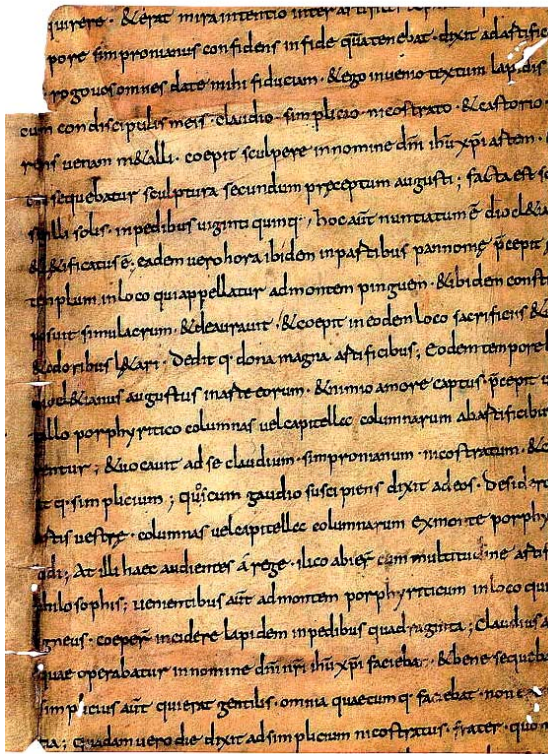 quirere · & erat mira intentio inter artifices
pore simpronianus confidens in fide qua tenebat · dixit ad artific
rogo uos omnes date mihi fiduciam · & ego inuenio textum lapidis
cum condiscipulis meis · claudio · simplicio · nicostrato · & castorio
rens uenam m&alli · coepit sculpere in nomine dñi ihũ xp̃i artem ·
sequebatur sculptura secundum praeceptum augusti ; facta est
solis · in pedibus uiginti quinq · hoc aũt nuntiatum ẽ diocl&ia
&ificatus ẽ ; eadem uero hora ibidem in partibus pannoniae p̃cepit
templum in loco qui appellatur ad montem pinguem · & ibidem const
posuit simulacrum · & deaurauit · & coepit in eodem loco sacrificiis &
& odoribus l&ari · Dedit q · dona magna artificibus ; Eodem tempore
diocl&ianus augustus in arte eorum · & nimio amore captus · p̃cepit
porphyritico columnas uel capitella columnarum ab artificibus
; & uocauit ad se claudium · simpronianum · nicostratum · &
q · simplicium ; quos cum gaudio suscipiens dixit ad eos · Desidero
artis uestrae · columnas uel capitella columnarum ex monte porphy
; At illi haec audientes a rege · ilico abier̃ cum multitudine artif
philosophis ; uenientibus aũt ad montem porphyriticum in loco qui
igneus · coeper̃ incidere lapidem in pedibus quadraginta ; Claudius
quae operabatur in nomine dñi nr̃i ihũ xp̃i faciebat · & bene sequeba
simplicius aũt qui erat gentilis · omnia quaecumq · faciebat · non
; Quadam uero die dixit ad simplicium nicostratus · frater · quo